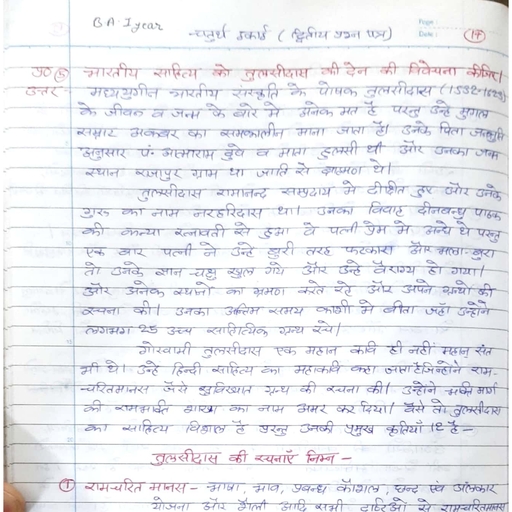 B.A. I year
चतुर्थ इकाई (द्वितीय प्रश्न पत्र)
Page
Date
17
प्र० 5 भारतीय साहित्य को तुलसीदास की देन की विवेचना कीजिए।
उत्तर- मध्ययुगीन भारतीय संस्कृति के पोषक तुलसीदास (1532-1623)
के जीवन व जन्म के बारे मे अनेक मत है परन्तु उन्हे मुगल
सम्राट अकबर का समकालीन माना जाता है। उनके पिता जनश्रुति
अनुसार पं. आत्माराम दुबे व माता हुलसी थी और उनका जन्म
स्थान राजापुर ग्राम था जाति से ब्राह्मण थे।
तुलसीदास रामानन्द सम्प्रदाय मे दीक्षित हुए और उनके
गुरु का नाम नरहरिदास था। उनका विवाह दीनबन्धु पाठक
की कन्या रत्नावली से हुआ वे पत्नी प्रेम मे अन्धे थे परन्तु
एक बार पत्नी ने उन्हे बुरी तरह फटकारा और भला-बुरा
तो उनके ज्ञान चक्षु खुल गये और उन्हे वैराग्य हो गया।
और अनेक स्थानो का भ्रमण करते रहे और अपने ग्रन्थो की
रचना की। उनका अन्तिम समय काशी मे बीता जहाँ उन्होने
लगभग 25 उच्च साहित्यिक ग्रन्थ रचे।
गोस्वामी तुलसीदास एक महान कवि ही नहीं महान संत
भी थे। उन्हे हिन्दी साहित्य का महाकवि कहा जाता है जिन्होने राम-
चरितमानस जैसे सुविख्यात ग्रन्थ की रचना की। उन्होने भक्ति मार्ग
की रामभक्ति शाखा का नाम अमर कर दिया। वैसे तो तुलसीदास
का साहित्य विशाल है परन्तु उनकी प्रमुख कृतियाँ 12 है-
तुलसीदास की रचनाएँ निम्न -
1 रामचरित मानस- भाषा, भाव, प्रबन्ध कौशल, छन्द एवं अलंकार
योजना और शैली आदि सभी दृष्टिओ से रामचरितमानस